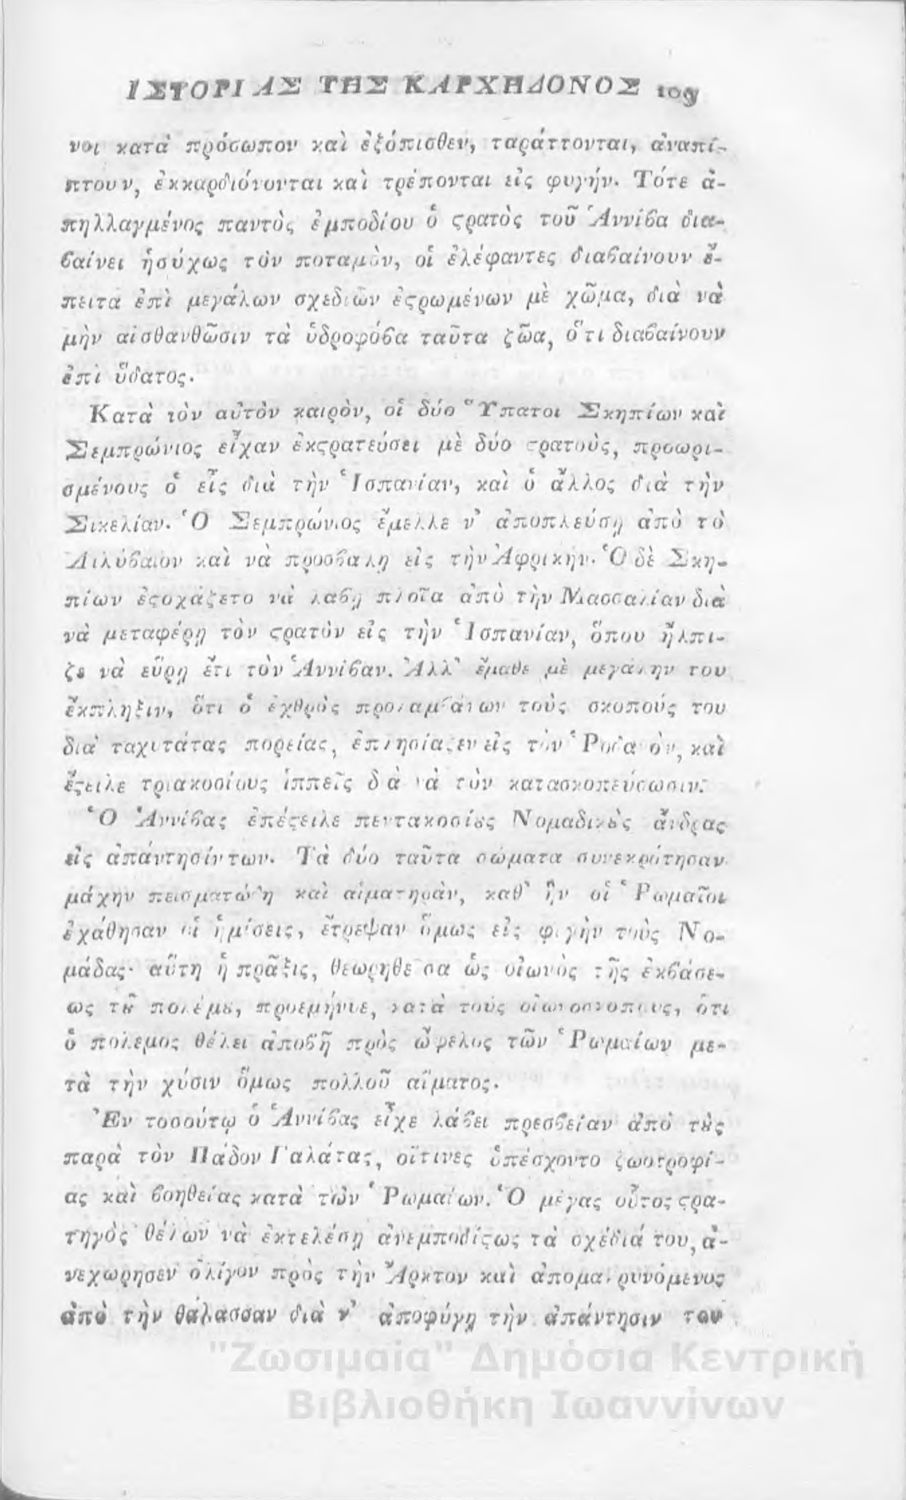 ΙΣΤΟΡΙΑΣ ΤΗΣ ΚΑΡΧΗΔΟΝΟΣ 109
νοι κατὰ πρόσωπον καὶ ἐξόπισθεν, ταράττονται, ἀναπί-
πτουν, ἐκκαρδιόνονται καὶ τρέπονται εἰς φυγήν. Τότε ἀ-
πηλλαγμένος παντὸς ἐμποδίου ὁ ϛρατὸς τοῦ Ἀννίβα δια-
βαίνει ἡσύχως τὸν ποταμὸν, οἱ ἐλέφαντες διαβαίνουν ἔ-
πειτα ἐπὶ μεγάλων σχεδιῶν ἐϛρωμένων μὲ χῶμα, διὰ νὰ
μὴν αἰσθανθῶσιν τὰ ὑδροφόβα ταῦτα ζῶα, ὅτι διαβαίνουν
ἐπὶ ὕδατος.
Κατὰ τὸν αὐτὸν καιρὸν, οἱ δύο Ὕπατοι Σκηπίων καὶ
Σεμπρώνιος εἶχαν ἐκϛρατεύσει μὲ δύο ϛρατοὺς, προωρι-
σμένους ὁ εἷς διὰ τὴν Ἱσπανίαν, καὶ ὁ ἄλλος διὰ τὴν
Σικελίαν. Ὁ Σεμπρώνιος ἔμελλε ν' ἀποπλεύσῃ ἀπὸ τὸ
Λιλύβαιον καὶ νὰ προσβαλῃ εἰς τὴν Ἀφρικήν. Ὁ δὲ Σκη-
πίων ἐϛοχάζετο νὰ λαβῃ πλοῖα ἀπὸ τὴν Μασσαλίαν διὰ
νὰ μεταφέρῃ τὸν ϛρατὸν εἰς τὴν Ἱσπανίαν, ὅπου ἤλπι-
ζε νὰ εὕρῃ ἔτι τὸν Ἀννίβαν. Ἀλλ' ἔμαθε μὲ μεγάλην του
ἔκπληξιν, ὅτι ὁ ἐχθρὸς προλαμβάνων τοὺς σκοπούς του
διὰ ταχυτάτας πορείας, ἐπλησίαζεν εἰς τὸν Ῥοδανὸν, καὶ
ἔϛειλε τριακοσίους ἱππεῖς διὰ νὰ τὸν κατασκοπεύσωσιν.
Ὁ Ἀννίβας ἐπέϛειλε πεντακοσίȣς Νομαδικȣ̀ς ἄνδρας
εἰς ἀπάντησίν των. Τὰ δύο ταῦτα σώματα συνεκρότησαν
μάχην πεισματώδη καὶ αἱματηρὰν, καθ' ἣν οἱ Ῥωμαῖοι
ἐχάθησαν οἱ ἡμίσεις, ἔτρεψαν ὅμως εἰς φυγὴν τοὺς Νο-
μάδας· αὕτη ἡ πρᾶξις, θεωρηθεῖσα ὡς οἰωνὸς τῆς ἐκβάσε-
ως τȣ͂ πολέμȣ, προεμήνυε, κατὰ τοὺς οἰωνοσκόπους, ὅτι
ὁ πόλεμος θέλει ἀποβῆ πρὸς ὤφελος τῶν Ῥωμαίων με-
τὰ τὴν χύσιν ὅμως πολλοῦ αἵματος.
Ἐν τοσούτῳ ὁ Ἀννίβας εἶχε λάβει πρεσβείαν ἀπὸ τȣ̀ς
παρὰ τὸν Πάδον Γαλάτας, οἵτινες ὑπέσχοντο ζωοτροφί-
ας καὶ βοηθείας κατὰ τῶν Ῥωμαίων. Ὁ μέγας οὗτος ϛρα-
τηγὸς θέλων νὰ ἐκτελέσῃ ἀνεμποδίϛως τὰ σχέδιά του, ἀ-
νεχώρησεν ὀλίγον πρὸς τὴν Ἄρκτον καὶ ἀπομακρυνόμενος
ἀπὸ τὴν θάλασσαν διὰ ν' ἀποφύγῃ τὴν ἀπάντησιν του
"Ζωσιμαία" Δημόσια Κεντρική
Βιβλιοθήκη Ιωαννίνων